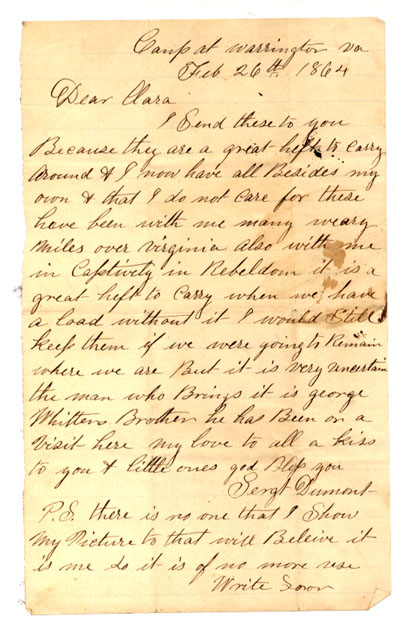 Camp at Warrington Va
Feb. 26th 1864
Dear Clara
I Send these to you
Because they are a great heft to Carry
around & I now have all Besides my
own & that I do not Care for these
have been with me many weary
miles over Virginia also with me
in Captivety in Rebeldom it is a
great heft to Carry when we have
a load without it I would Still
keep them if we were going to Remain
where we are But it is very uncertain
the man who Brings it is george
Whittens Brother he has Been on a
Visit here my love to all a kiss
to you & little ones god Bless you
Sergt Dumont
P.S. there is no one that I Show
My Picture to that will Beleive it
is me So it is of no more use
Write Soon